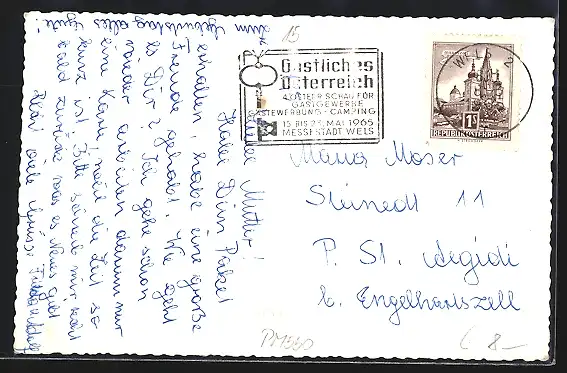 zum Geburtstag alles Gute!
Liebe Mutter!
Habe Dein Paket
erhalten habe eine große
Freude gehabt. Wie geht
es Dir? Ich gehe schon
wieder arbeiten darum nur
eine Karte, weil die Zeit so
kurz ist. Bitte schreib mir
bald zurück was es Neues gibt
viele Grüsse
15
Gastliches
Österreich
4. ÖSTERR. SCHAU FÜR
GASTGEWERBE
GÄSTEWERBUNG - CAMPING
15. BIS 23. MAI 1965
MESSESTADT WELS
1S
REPUBLIK ÖSTERREICH
Maria Moser
Steinedt 11
P. St. Aegidi
b. Engelhartszell
PM350
8.-